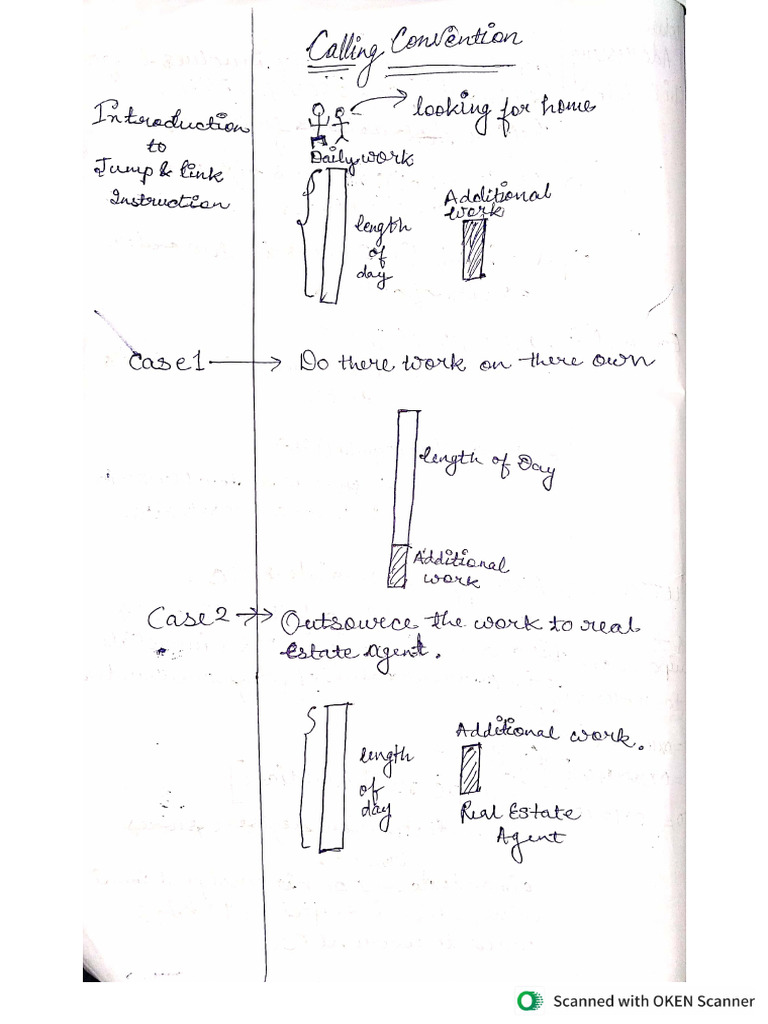 Calling Convention
Introduction
to
Jump & link
Instruction
looking for home
Daily work
length
of
day
Additional
work
Case1
Do there work on there own
length of Day
Additional
work
Case2
Outsource the work to real
Estate Agent.
length
of
day
Additional work.
Real Estate
Agent
Scanned with OKEN Scanner